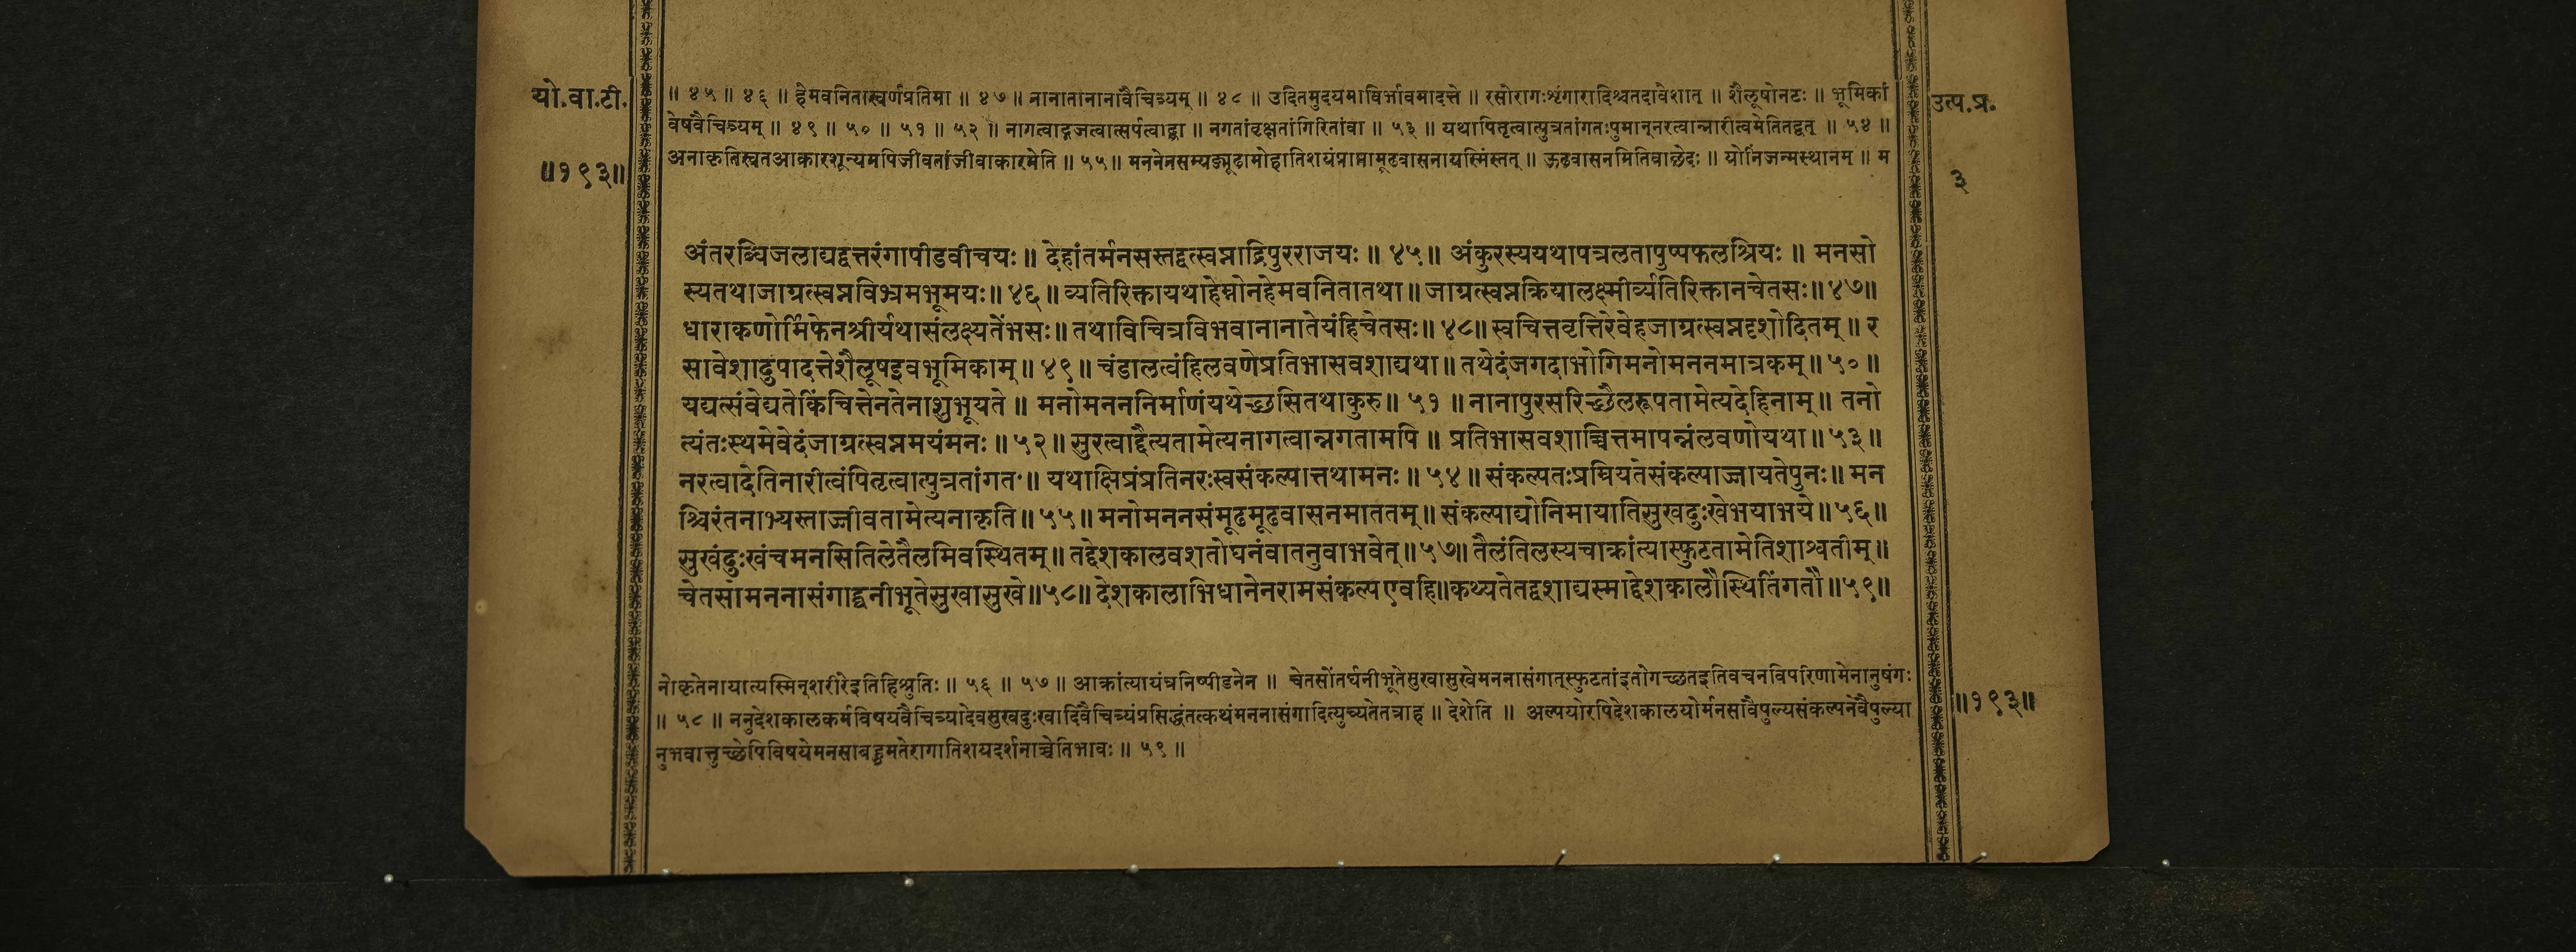 यो.वा.टी.
॥१९३॥
॥ ४५ ॥ ४६ ॥ हेमवनितास्वर्णप्रतिमा ॥ ४७ ॥ नानातानानावैचित्र्यम् ॥ ४८ ॥ उदितमुदयमाविर्भावमादत्ते ॥ रसोरागःशृंगारादिश्चतदावेशात् ॥ शैलूषोनटः ॥ भूमिकां
वेषवैचित्र्यम् ॥ ४९ ॥ ५० ॥ ५१ ॥ ५२ ॥ नागत्वाद्गजत्वात्सर्पत्वाद्वा ॥ नगतांवृक्षतांगिरितांवा ॥ ५३ ॥ यथापितृत्वात्पुत्रतांगतःपुमान्नरत्वान्नारीत्वमेतितद्वत् ॥ ५४ ॥
अनाकृतिस्वतआकारशून्यमपिजीवतांजीवाकारमेति ॥ ५५ ॥ मननेनसम्यङ्मूढामोहातिशयंप्राप्तामूढवासनायस्मिंस्तत् ॥ ऊढवासनमितिवाछेदः ॥ योनिंजन्मस्थानम् ॥ म
उत्प.प्र.
३
अंतरब्धिजलाद्यद्वत्तरंगापीडवीचयः ॥ देहांतर्मनसस्तद्वत्स्वप्नाद्रिपुरराजयः ॥ ४५ ॥ अंकुरस्ययथापत्रलतापुष्पफलश्रियः ॥ मनसो
स्यतथाजाग्रत्स्वप्नविभ्रमभूमयः ॥ ४६ ॥ व्यतिरिक्तायथाहेम्नोनहेमवनितातथा ॥ जाग्रत्स्वप्नक्रियालक्ष्मीर्व्यतिरिक्तानचेतसः ॥ ४७ ॥
धाराकणोर्मिफेनश्रीर्यथासंलक्ष्यतेंभसः ॥ तथाविचित्रविभवानानातेयंहिचेतसः ॥ ४८ ॥ स्वचित्तवृत्तिरेवेहजाग्रत्स्वप्नदृशोदितम् ॥ र
सावेशादुपादत्तेशैलूषइवभूमिकाम् ॥ ४९ ॥ चंडालत्वंहिलवणेप्रतिभासवशाद्यथा ॥ तथेदंजगदाभोगिमनोमननमात्रकम् ॥ ५० ॥
यद्यत्संवेद्यतेकिंचित्तेनतेनाशुभूयते ॥ मनोमनननिर्माणंयथेच्छसितथाकुरु ॥ ५१ ॥ नानापुरसरिच्छैलरूपतामेत्यदेहिनाम् ॥ तनो
त्यंतःस्थमेवेदंजाग्रत्स्वप्नमयंमनः ॥ ५२ ॥ सुरत्वाद्दैत्यतामेत्यनागत्वान्नगतामपि ॥ प्रतिभासवशाच्चित्तमापन्नंलवणोयथा ॥ ५३ ॥
नरत्वादेतिनारीत्वंपितृत्वात्पुत्रतांगतः ॥ यथाक्षिप्रंप्रतिनरःस्वसंकल्पात्तथामनः ॥ ५४ ॥ संकल्पतःप्रम्रियतेसंकल्पाज्जायतेपुनः ॥ मन
श्चिरंतनाभ्यस्ताज्जीवतामेत्यनाकृति ॥ ५५ ॥ मनोमननसंमूढमूढवासनमाततम् ॥ संकल्पाद्योनिमायातिसुखदुःखेभयाभये ॥ ५६ ॥
सुखंदुःखंचमनसितिलेतैलमिवस्थितम् ॥ तद्देशकालवशतोघनंवातनुवाभवेत् ॥ ५७ ॥ तैलंतिलस्यचाक्रांत्यास्फुटतामेतिशाश्वतीम् ॥
चेतसोमननासंगाद्घनीभूतेसुखासुखे ॥ ५८ ॥ देशकालाभिधानेनरामसंकल्पएवहि ॥ कथ्यतेतद्वशाद्यस्माद्देशकालौस्थितिंगतौ ॥ ५९ ॥
नोकृतेनायात्यस्मिन्शरीरेइतिहिश्रुतिः ॥ ५६ ॥ ५७ ॥ आक्रांत्यायंत्रनिष्पीडनेन ॥ चेतसोंतर्घनीभूतेसुखासुखेमननासंगात्स्फुटतांइतोगच्छतइतिवचनविपरिणामेनानुषंगः
॥ ५८ ॥ ननुदेशकालकर्मविषयवैचित्र्यादेवसुखदुःखादिवैचित्र्यंप्रसिद्धंतत्कथंमननासंगादित्युच्यतेतत्राह ॥ देशेति ॥ अल्पयोरपिदेशकालयोर्मनसावैपुल्यसंकल्पनेवैपुल्या
नुभवात्तुच्छेपिविषयेमनसाबहुमतेरागातिशयदर्शनाच्चेतिभावः ॥ ५९ ॥
॥१९३॥